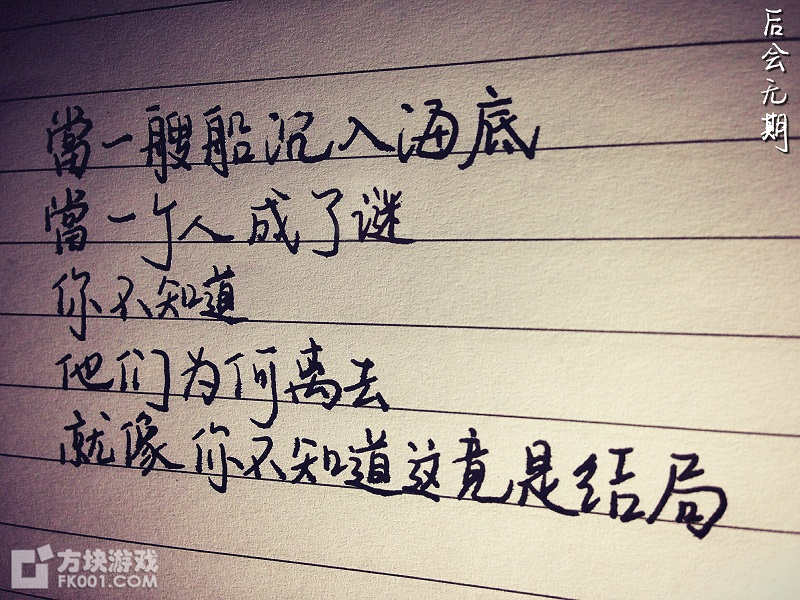 后会无期
當一艘船沉入海底
當一个人成了谜
你不知道
他们为何离去
就像你不知道这竟是结局
方块游戏
FK001.COM